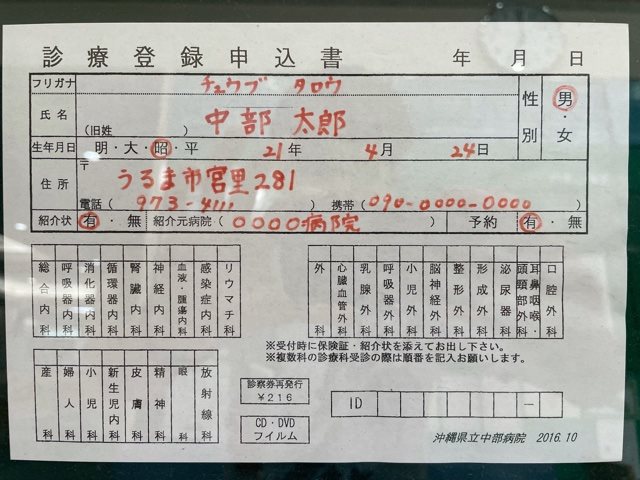 診療登録申込書 年 月 日
フリガナ チュウブ タロウ
氏名 中部 太郎
(旧姓 )
性別 男・女
生年月日 明・大・昭・平 21年 4月 24日
住所 〒
うるま市宮里281
電話( 973-4111 ) 携帯(090-0000-0000 )
紹介状 有・無 紹介元病院( 0000病院 ) 予約 有・無
総合内科 呼吸器内科 消化器内科 循環器内科 腎臓内科 神経内科 血液・腫瘍内科 感染症内科 リウマチ科
外科 心臓血管外科 乳腺外科 呼吸器外科 小児外科 脳神経外科 整形外科 形成外科 泌尿器科 耳鼻咽喉・頭頸部外科 口腔外科
※受付時に保険証・紹介状を添えてお出し下さい。
※複数科の診療科受診の際は順番を記入お願いします。
産科 婦人科 小児科 新生児内科 皮膚科 精神科 眼科 放射線科
診察券再発行
¥216
CD・DVD
フイルム
ID −
沖縄県立中部病院 2016.10